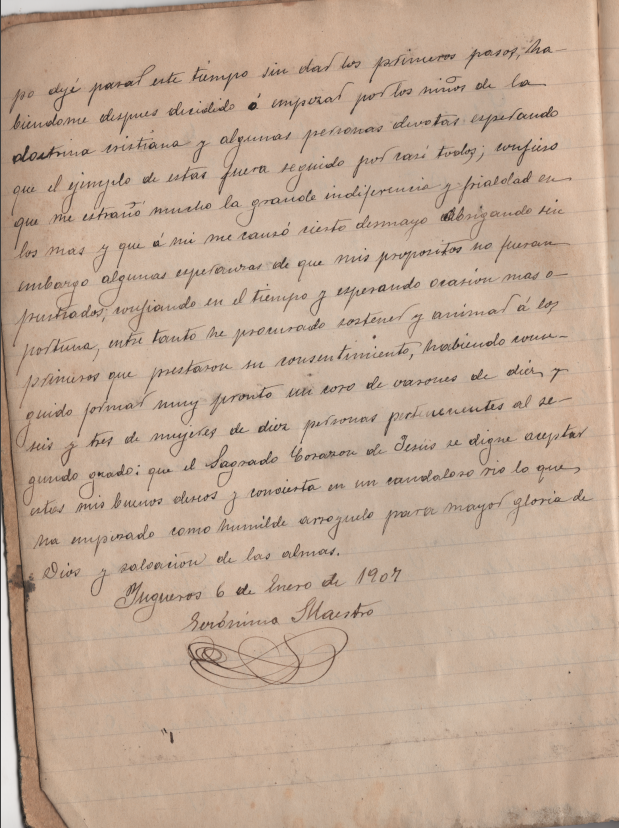 po dejé pasar este tiempo sin dar los primeros pasos; ha-
biendome despues decidido á empezar por los niños de la
doctrina cristiana y algunas personas devotas esperando
que el ejemplo de estas fuera seguido por casi todos; confieso
que me estrañó mucho la grande indiferencia y frialdad en
los mas y que á mi me causó cierto desmayo abrigando sin
embargo algunas esperanzas de que mis propositos no fueran
frustrados, confiando en el tiempo y esperando ocasión mas o-
portuna, entre tanto he procurado sostener y animar á los
primeros que prestaron su consentimiento, habiendo conse-
guido formar muy pronto un coro de varones de diez y
seis y tres de mujeres de diez personas pertenecientes al se-
gundo grado: que el Sagrado Corazon de Jesús se digne aceptar
estos mis buenos deseos y convierta en un caudaloso rio lo que
ha empezado como humilde arroyuelo para mayor gloria de
Dios y salvación de las almas.
Fugueros 6 de Enero de 1907
Gerónimo Maestro